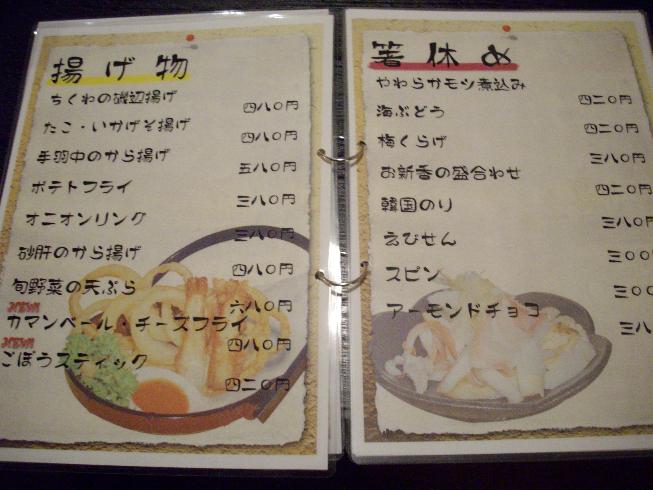 揚げ物
ちくわの磯辺揚げ 四八〇円
たこ・いかげそ揚げ 四八〇円
手羽中のから揚げ 五八〇円
ポテトフライ 三八〇円
オニオンリング 三八〇円
砂肝のから揚げ 四八〇円
旬野菜の天ぷら 六八〇円
NEW
カマンベール・チーズフライ 四八〇円
NEW
ごぼうスティック 四二〇円
箸休め
やわらかモツ煮込み 四二〇円
海ぶどう 四二〇円
梅くらげ 三八〇円
お新香の盛合わせ 四二〇円
韓国のり 三八〇円
えびせん 三〇〇
スピン 三〇〇
アーモンドチョコ 三八